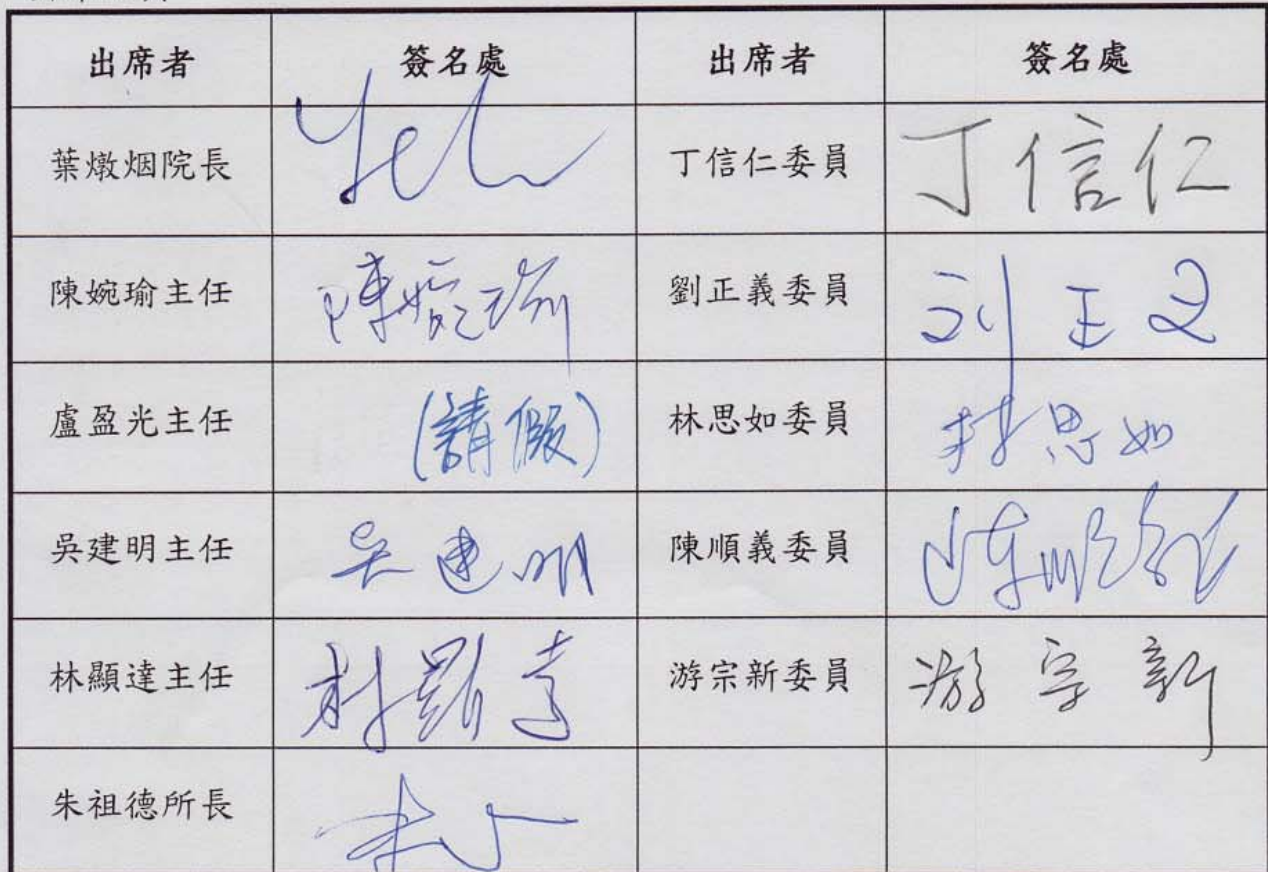 出席者 簽名處 出席者 簽名處
葉燉烟院長 Yeh 丁信仁委員 丁信仁
陳婉瑜主任 陳婉瑜 劉正義委員 刘正义
盧盈光主任 (請假) 林思如委員 林思如
吳建明主任 吳建明 陳順義委員 陳順義
林顯達主任 林顯達 游宗新委員 游宗新
朱祖德所長